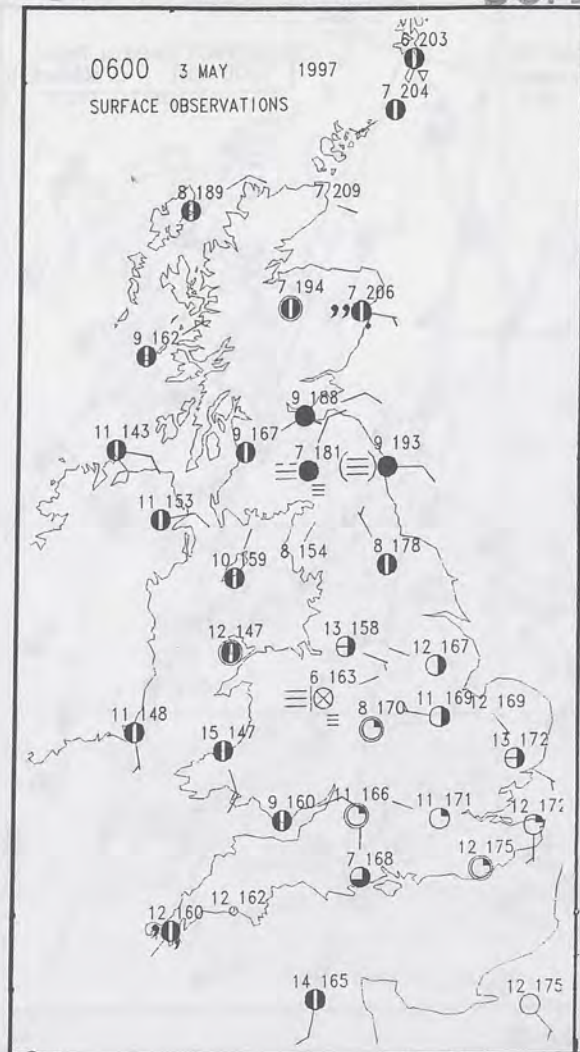 6 203
0600 3 MAY 1997
SURFACE OBSERVATIONS
7 204
8 189
7 209
7 194
7 206
9 162
9 188
11 143
9 167
7 181
9 193
11 153
10 159
8 154
8 178
12 147
13 158
12 167
6 163
8 170
11 169
12 169
11 148
15 147
13 172
9 160
11 166
11 171
12 172
7 168
12 175
12 162
12 160
14 165
12 175